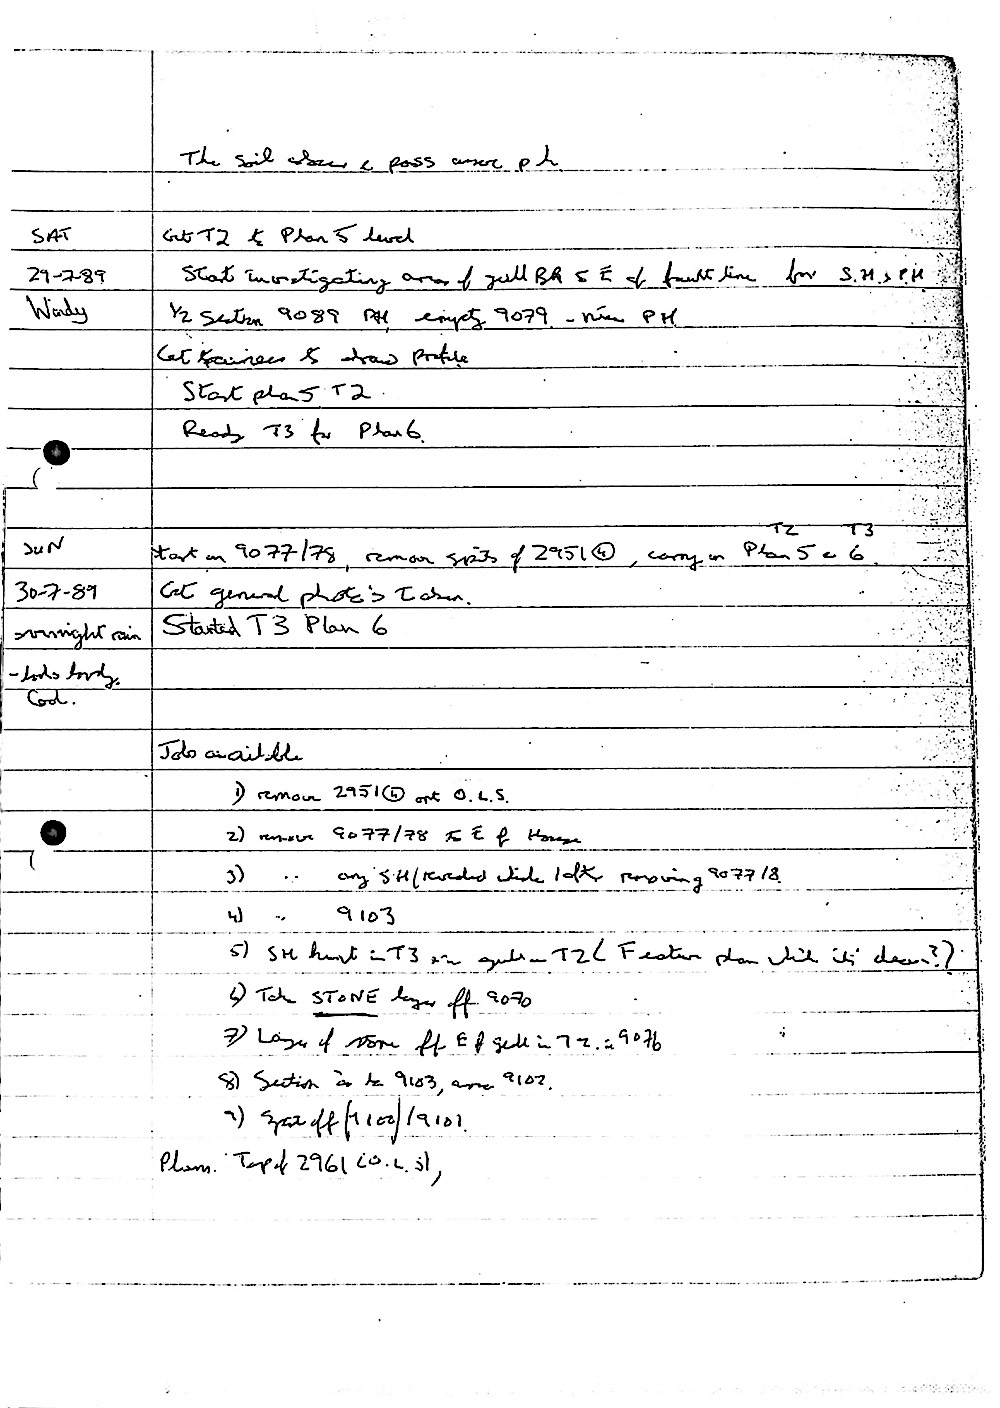 The soil above a poss more ph
SAT
Get T2 to Plan 5 level
29-7-89
Start investigating area of gull BR & E of fault line for S.H. & P.H
Windy
1/2 Section 9089 PH, empty 9079 - nice PH
Get & draw Profile
Start plan 5 T2
Ready T3 for Plan 6.
T2 T3
SUN
Start on 9077/78, remove spits of 2951④, carry on Plan 5 & 6.
30-7-89
Get general photo's taken.
overnight rain
Started T3 Plan 6
- looks
Cool.
Jobs available
1) remove 2951④ O.L.S.
2) remove 9077/78 to E of House
3) .. any SH (revealed while) after removing 9077/8.
4) .. 9103
5) SH hunt in T3 again in T2 (Feature plan while it's clean?)
6) Take STONE layer off 9070
7) Layer of stone off E of gull in T2. = 9076
8) Section 9103, 9102.
9) Spit off (9100)/9101.
Plans. Top of 2961 (O.L.S),